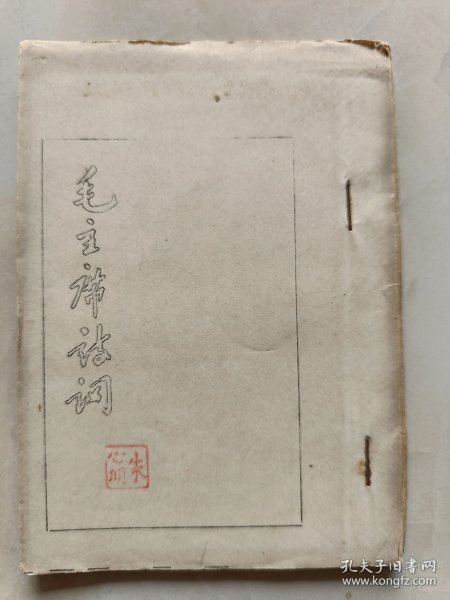 毛主席诗词
朱
心明
孔夫子旧书网
www.kongfz.com